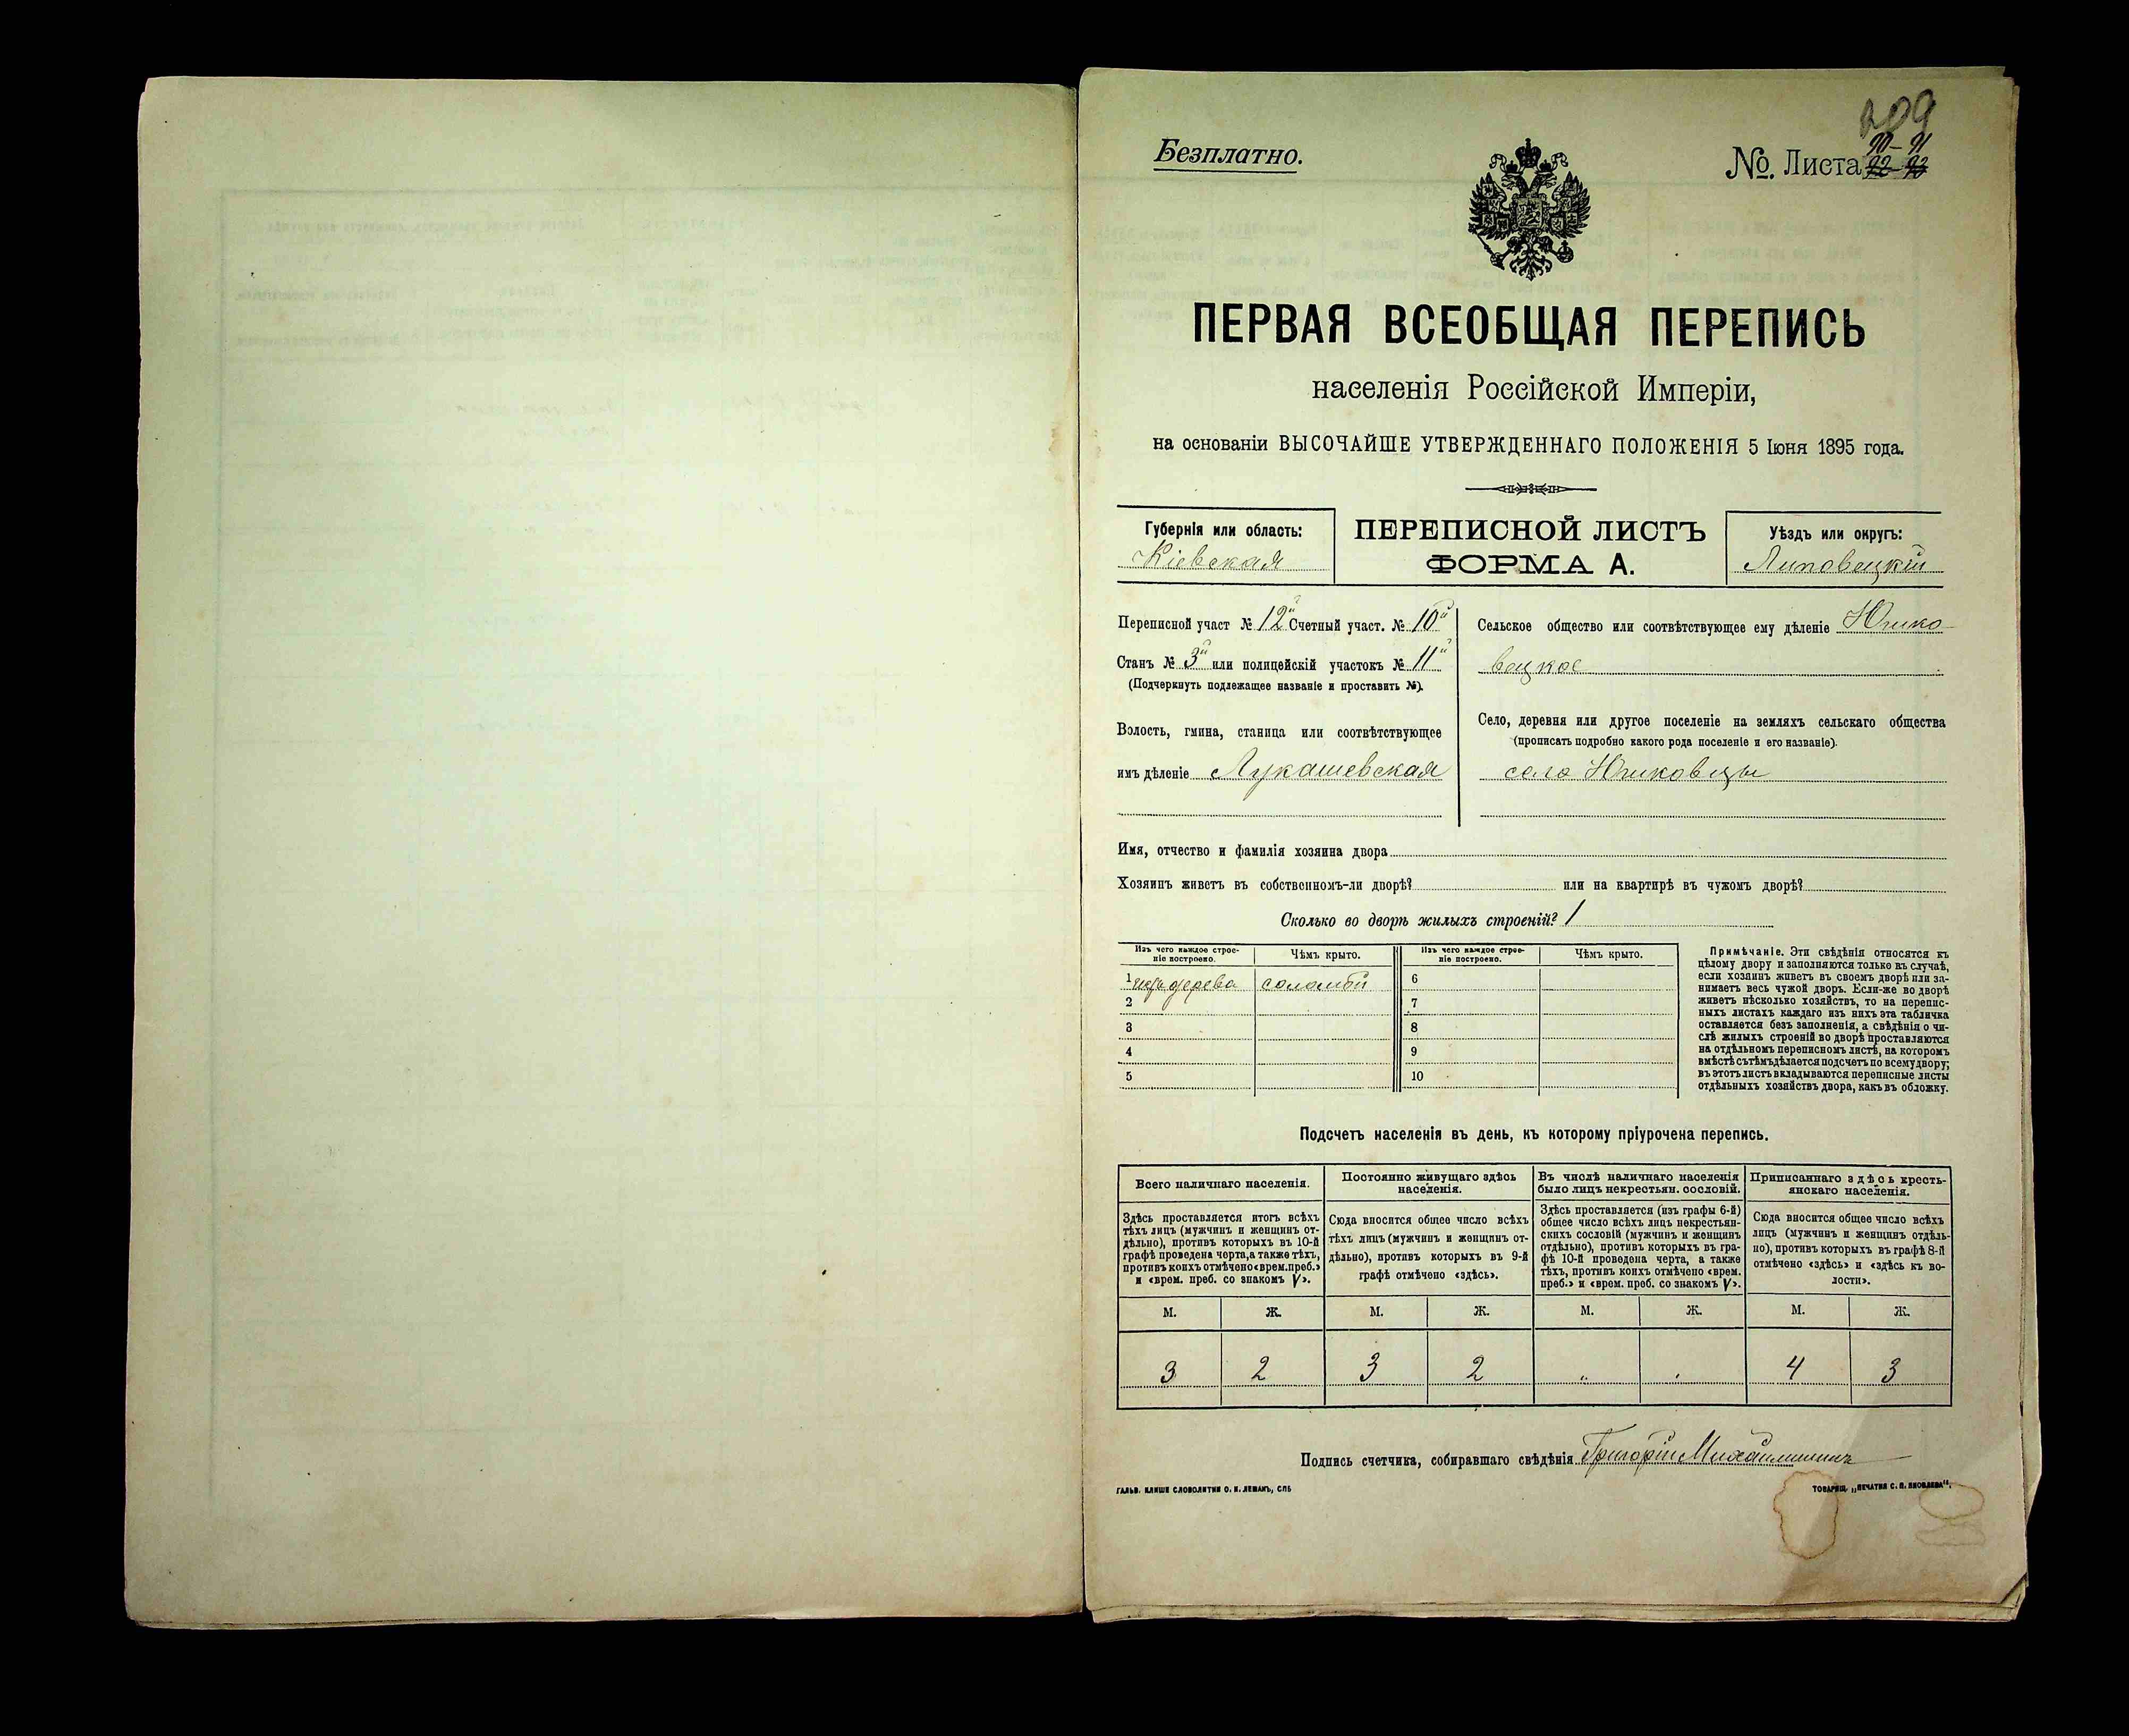 209
Безплатно.
№. Листа 90–91
92–93
ПЕРВАЯ ВСЕОБЩАЯ ПЕРЕПИСЬ
населенія Россійской Имперіи,
на основаніи ВЫСОЧАЙШЕ УТВЕРЖДЕННАГО ПОЛОЖЕНІЯ 5 Іюня 1895 года.
Губернія или область:
Кіевская
ПЕРЕПИСНОЙ ЛИСТЪ
ФОРМА А.
Уѣздъ или округъ:
Липовецкій
Переписной участ № 12й Счетный участ. № 10й
Станъ № 3й или полицейскій участокъ № 11й
(Подчеркнуть подлежащее названіе и проставить №).
Волость, гмина, станица или соотвѣтствующее
имъ дѣленіе Лукашевская
Сельское общество или соотвѣтствующее ему дѣленіе Юшко-
вецкое
Село, деревня или другое поселеніе на земляхъ сельскаго общества
(прописать подробно какого рода поселеніе и его названіе).
село Юшковцы
Имя, отчество и фамилія хозяина двора
Хозяинъ живетъ въ собственномъ-ли дворѣ? или на квартирѣ въ чужомъ дворѣ?
Сколько во дворѣ жилыхъ строеній? 1
Изъ чего каждое строе-
ніе построено.
Чѣмъ крыто.
Изъ чего каждое строе-
ніе построено.
Чѣмъ крыто.
1 изъ дерева соломой 6
2 7
3 8
4 9
5 10
Примѣчаніе. Эти свѣдѣнія относятся къ
цѣлому двору и заполняются только въ случаѣ,
если хозяинъ живетъ въ своемъ дворѣ или за-
нимаетъ весь чужой дворъ. Если-же во дворѣ
живетъ нѣсколько хозяйствъ, то на перепис-
ныхъ листахъ каждаго изъ нихъ эта табличка
оставляется безъ заполненія, а свѣдѣнія о чи-
слѣ жилыхъ строеній во дворѣ проставляются
на отдѣльномъ переписномъ листѣ, на которомъ
вмѣстѣ съ тѣмъ дѣлается подсчетъ по всему двору;
въ этотъ листъ вкладываются переписные листы
отдѣльныхъ хозяйствъ двора, какъ въ обложку.
Подсчетъ населенія въ день, къ которому пріурочена перепись.
Всего наличнаго населенія.
Здѣсь проставляется итогъ всѣхъ
тѣхъ лицъ (мужчинъ и женщинъ от-
дѣльно), противъ которыхъ въ 10-й
графѣ проведена черта, а также тѣхъ,
противъ коихъ отмѣчено «врем. преб.»
и «врем. преб. со знакомъ V».
Постоянно живущаго здѣсь
населенія.
Сюда вносится общее число всѣхъ
тѣхъ лицъ (мужчинъ и женщинъ от-
дѣльно), противъ которыхъ въ 9-й
графѣ отмѣчено «здѣсь».
Въ числѣ наличнаго населенія
было лицъ некрестьян. сословій.
Здѣсь проставляется (изъ графы 6-й)
общее число всѣхъ лицъ некрестьян-
скихъ сословій (мужчинъ и женщинъ
отдѣльно), противъ которыхъ въ гра-
фѣ 10-й проведена черта, а также
тѣхъ, противъ коихъ отмѣчено «врем.
преб.» и «врем. преб. со знакомъ V».
Приписаннаго здѣсь кресть-
янскаго населенія.
Сюда вносится общее число всѣхъ
лицъ (мужчинъ и женщинъ отдѣль-
но), противъ которыхъ въ графѣ 8-й
отмѣчено «здѣсь» и «здѣсь къ во-
лости».
М. Ж. М. Ж. М. Ж. М. Ж.
3 2 3 2 „ „ 4 3
Подпись счетчика, собиравшаго свѣдѣнія Григорій
ГАЛЬВ. КЛИШЕ СЛОВОЛИТНИ О. И. ЛЕМАНЪ, СПБ
ТОВАРИЩ. „ПЕЧАТНЯ С. П. ЯКОВЛЕВА“.